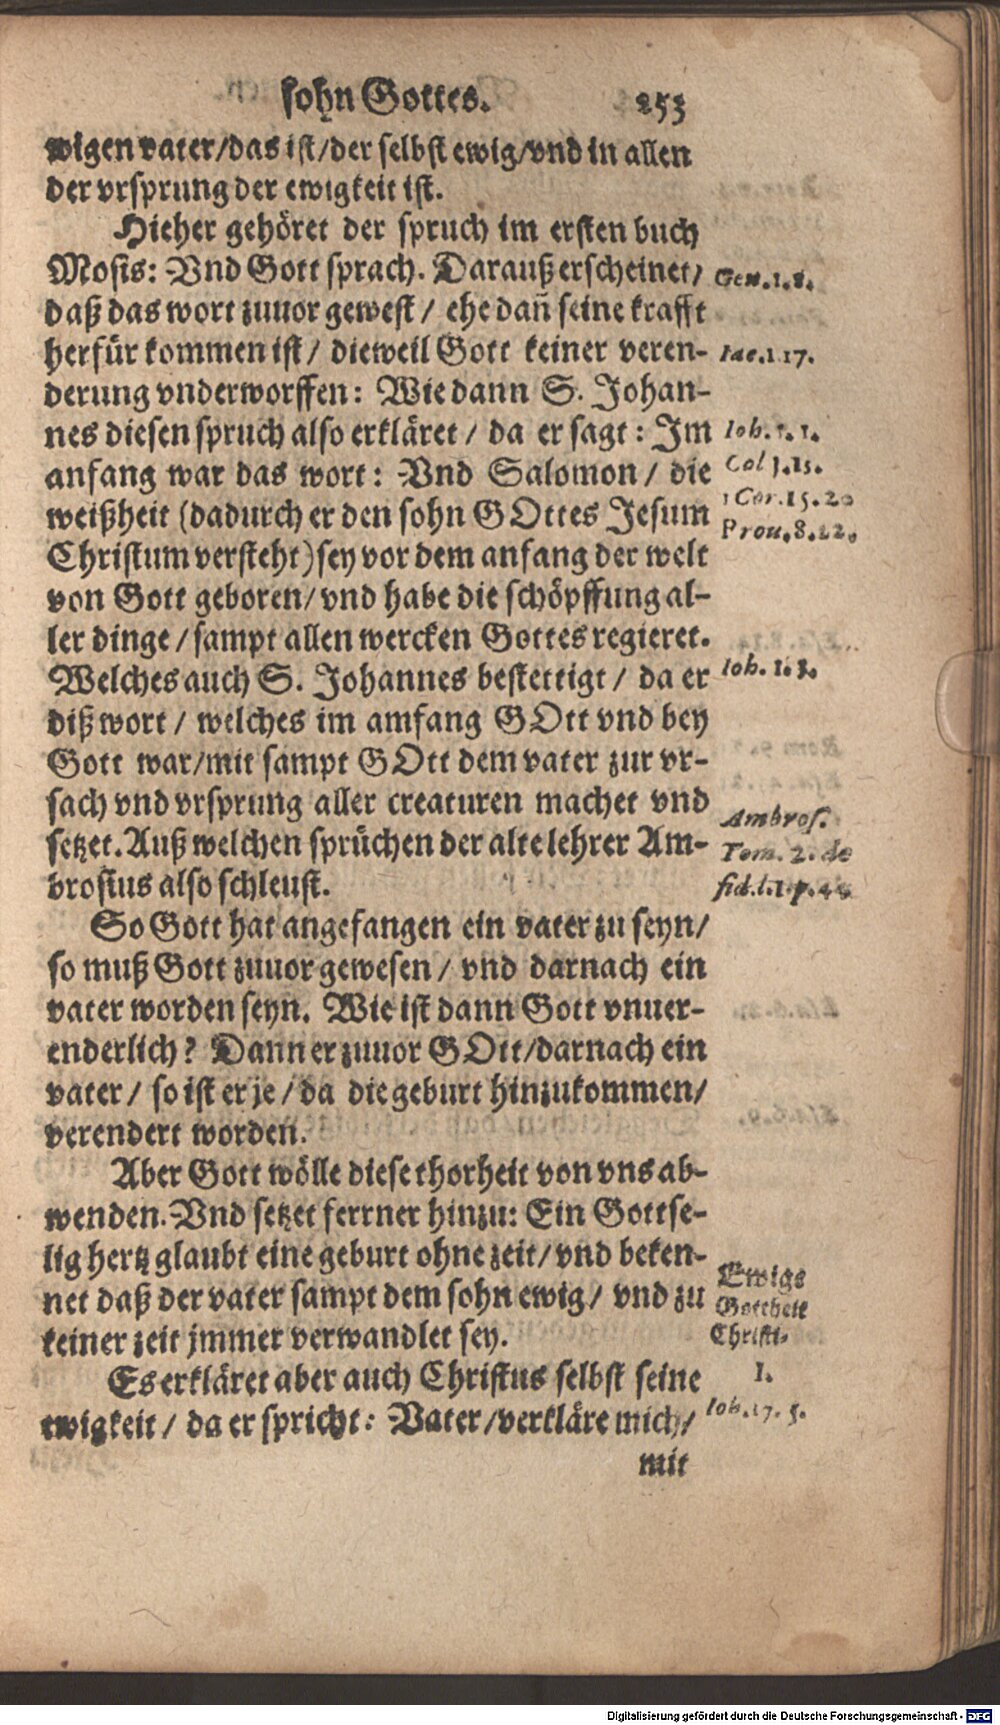 sohn Gottes. 253
wigen vater/das ist/der selbst ewig/vnd in allen
der vrsprung der ewigkeit ist.
Hieher gehöret der spruch im ersten buch
Mosis: Vnd Gott sprach. Darauß erscheinet/
Gen.1.8.
daß das wort zuuor gewest / ehe dañ seine krafft
herfür kommen ist / dieweil Gott keiner veren-
Iac.1.17.
derung vnderworffen: Wie dann S. Johan-
nes diesen spruch also erkläret / da er sagt: Im
Ioh.1.1.
anfang war das wort: Vnd Salomon / die
Col 1.15.
weißheit (dadurch er den sohn GOttes Jesum
1 Cor.15.20
Christum versteht) sey vor dem anfang der welt
Prou.8.22.
von Gott geboren/ vnd habe die schöpffung al-
ler dinge / sampt allen wercken Gottes regieret.
Welches auch S. Johannes bestettigt / da er
Ioh.1.3.
diß wort / welches im amfang GOtt vnd bey
Gott war/mit sampt GOtt dem vater zur vr-
sach vnd vrsprung aller creaturen machet vnd
setzet. Auß welchen sprüchen der alte lehrer Am-
Ambros.
Tom. 2. de
brosius also schleust.
fid.l.1.p.
So Gott hat angefangen ein vater zu seyn/
so muß Gott zuuor gewesen / vnd darnach ein
vater worden seyn. Wie ist dann Gott vnuer-
enderlich? Dann er zuuor GOtt/darnach ein
vater / so ist er je / da die geburt hinzukommen/
verendert worden.
Aber Gott wölle diese thorheit von vns ab-
wenden. Vnd setzet ferrner hinzu: Ein Gottse-
lig hertz glaubt eine geburt ohne zeit/ vnd beken-
net daß der vater sampt dem sohn ewig / vnd zu
keiner zeit jmmer verwandlet sey.
Ewige
Gottheit
Christi.
Es erkläret aber auch Christus selbst seine
I.
ewigkeit / da er spricht: Vater/verkläre mich/
Ioh.17.5.
mit
Digitalisierung gefördert durch die Deutsche Forschungsgemeinschaft - DFG